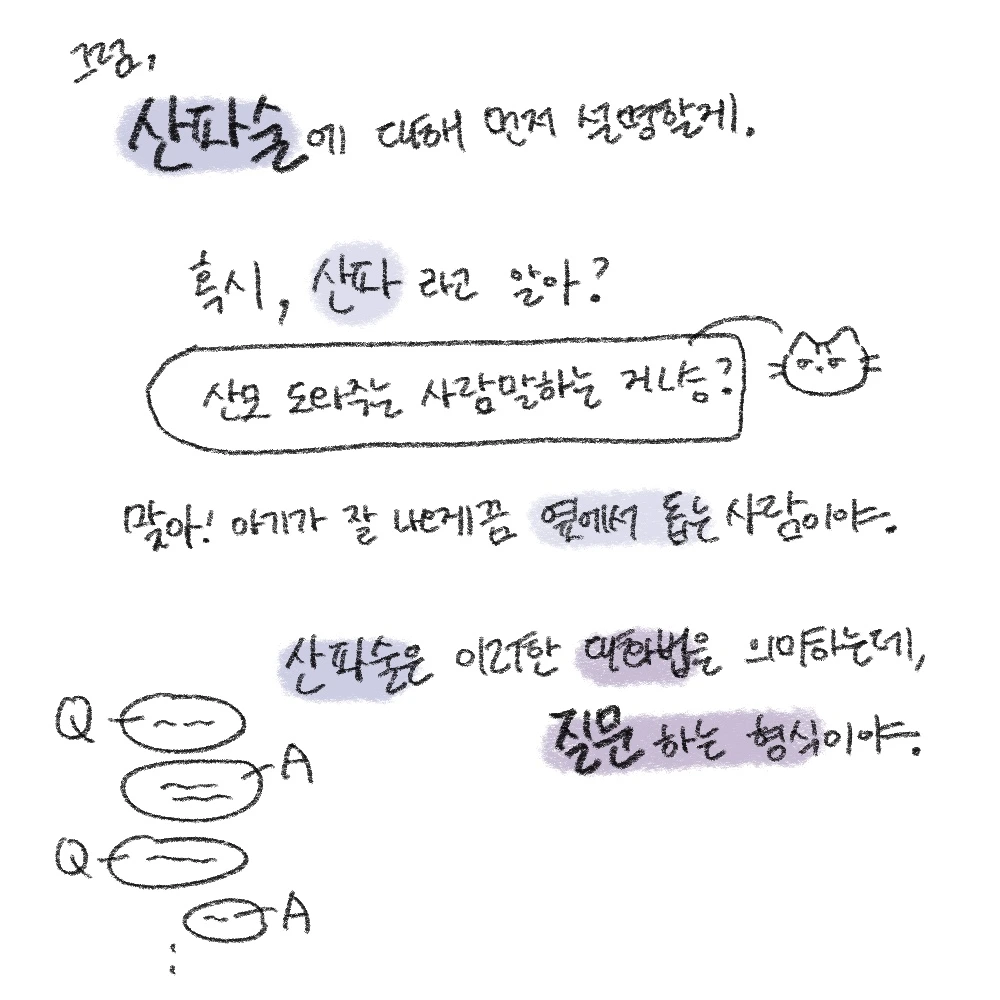 끄럼,
산파술에 대해 먼저 설명할게.
혹시, 산파라고 알아?
산모 도와주는 사람말하는 거냐옹?
맞아! 아기가 잘 나오게끔 옆에서 돕는 사람이야.
산파술은 이러한 대화법을 의미하는데,
질문하는 형식이야.
Q
A
Q
A
: